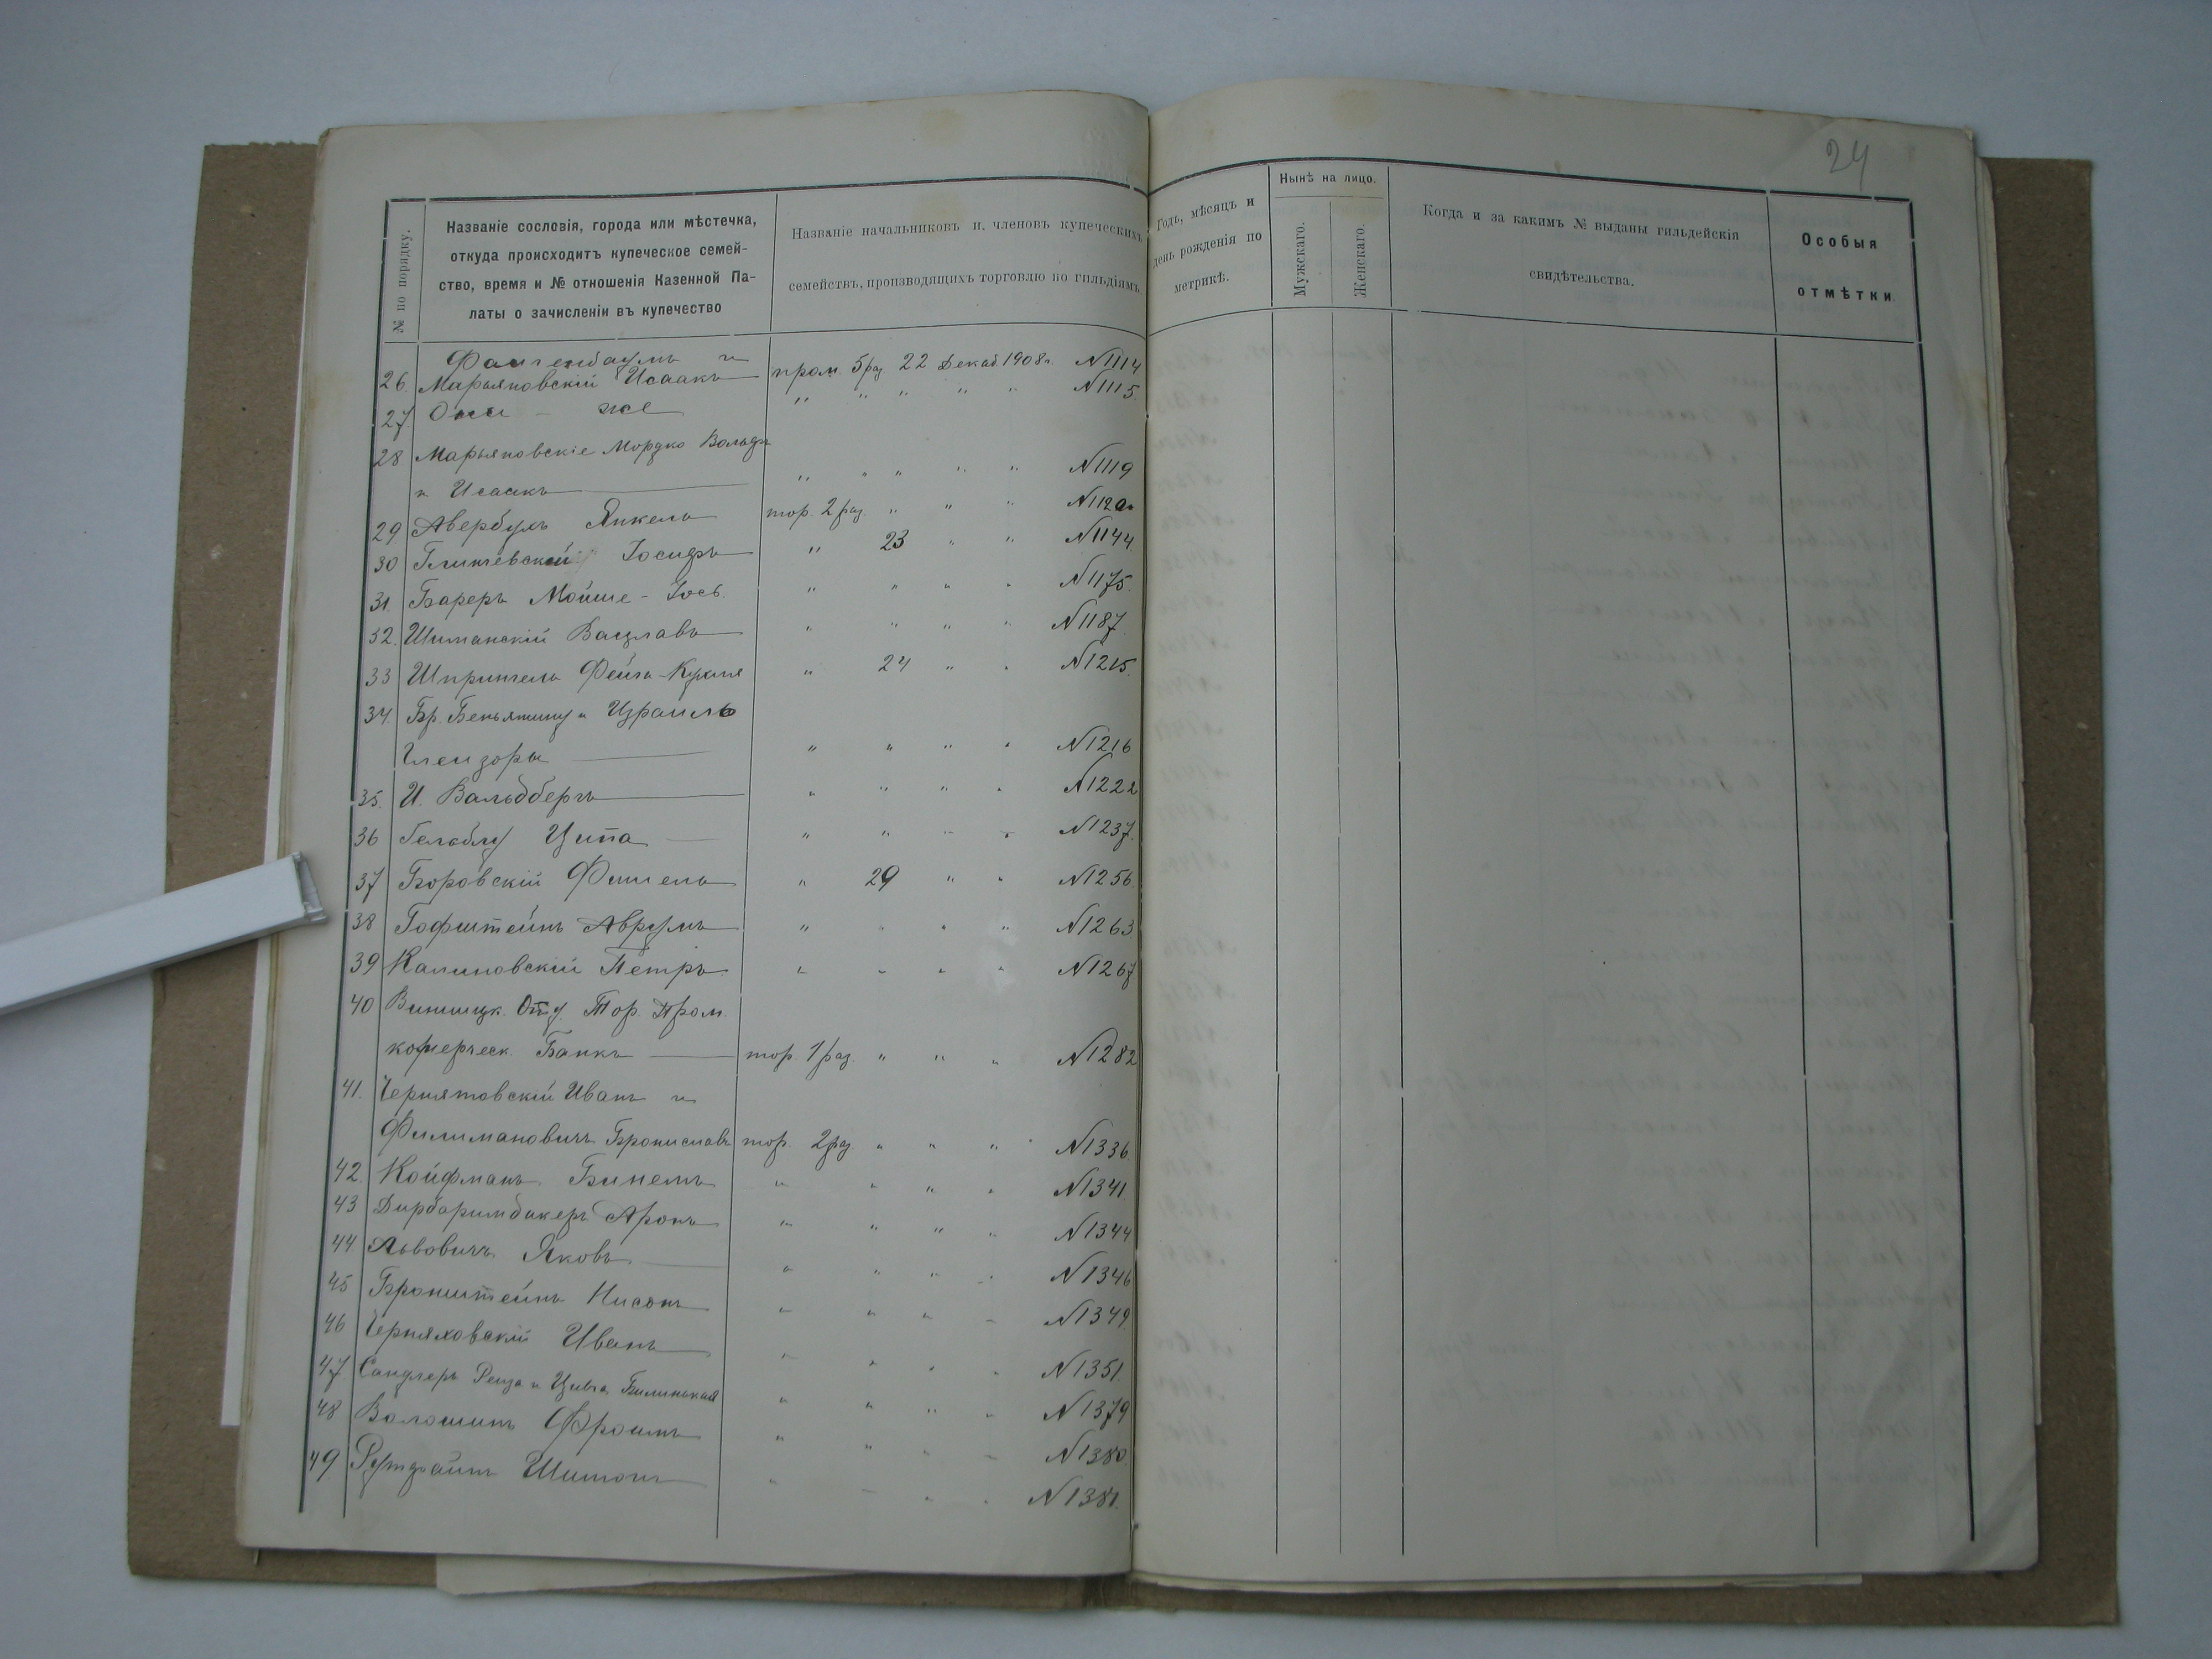 24
№ по порядку.
Названіе сословія, города или мѣстечка,
откуда происходитъ купеческое семей-
ство, время и № отношенія Казенной Па-
латы о зачисленіи въ купечество
Названіе начальниковъ и. членовъ купеческихъ
семействъ, производящихъ торговлю по гильдіямъ.
Годъ, мѣсяцъ и
день рожденія по
метрикѣ.
Нынѣ на лицо.
Мужскаго.
Женскаго.
Когда и за какимъ № выданы гильдейскія
свидѣтельства.
Особыя
отмѣтки.
Файгенбаумъ и
26. Марьяновскій Исаакъ пром. 5 раз 22 Декаб. 1908 г. N1114
27. Они - же " " " " " N1115.
28 Марьяновскіе Мордко Вольфъ
и Исаакъ " " " " " N1119
29 Авербухъ Янкель тор. 2 раз. " " "
30 Глинчевскій Іосифъ " 23 " " N1144
31. Бареръ Мойше - Іось. " " " " N1175.
32. Шиманскій Вацлавъ " " " " N1187.
33 Шпригель Фейга-Крыня " 24 " " N1215.
34. Бр. Беньяминъ и Израиль
" " " " N1216
35. И. Вальдбергъ " " " " N1222
36 Ципа " " " " N1237.
37 Боровскій Фишель " 29 " " N1256.
38 Гофштейнъ Аврумъ " " " " N1263
39 Калиновскій Петръ. " " " " N1267
40 Винницк. Отд. Тор. Пром.
комерческ. Банкъ тор 1 раз. " " " N1282
41. Чернятовскій Иванъ и
Филимановичъ Брониславъ тор. 2 раз " " " N1336.
42. Койфманъ Бинемъ " " " " N1341
43 Дирбаримдикеръ Аронъ " " " " N1344
44. Львовичъ Яковъ " " " " N1346
45 Бронштейнъ Нисонъ " " " " N1349
46 Черняховскій Иванъ " " " " N1351.
47 Сандлеръ Рейза и Цивья Билинская " " " " N1379
48 Волошинъ Фроимъ " " " " N1380.
49 Рутфайнъ Шимонъ " " " " N1381.